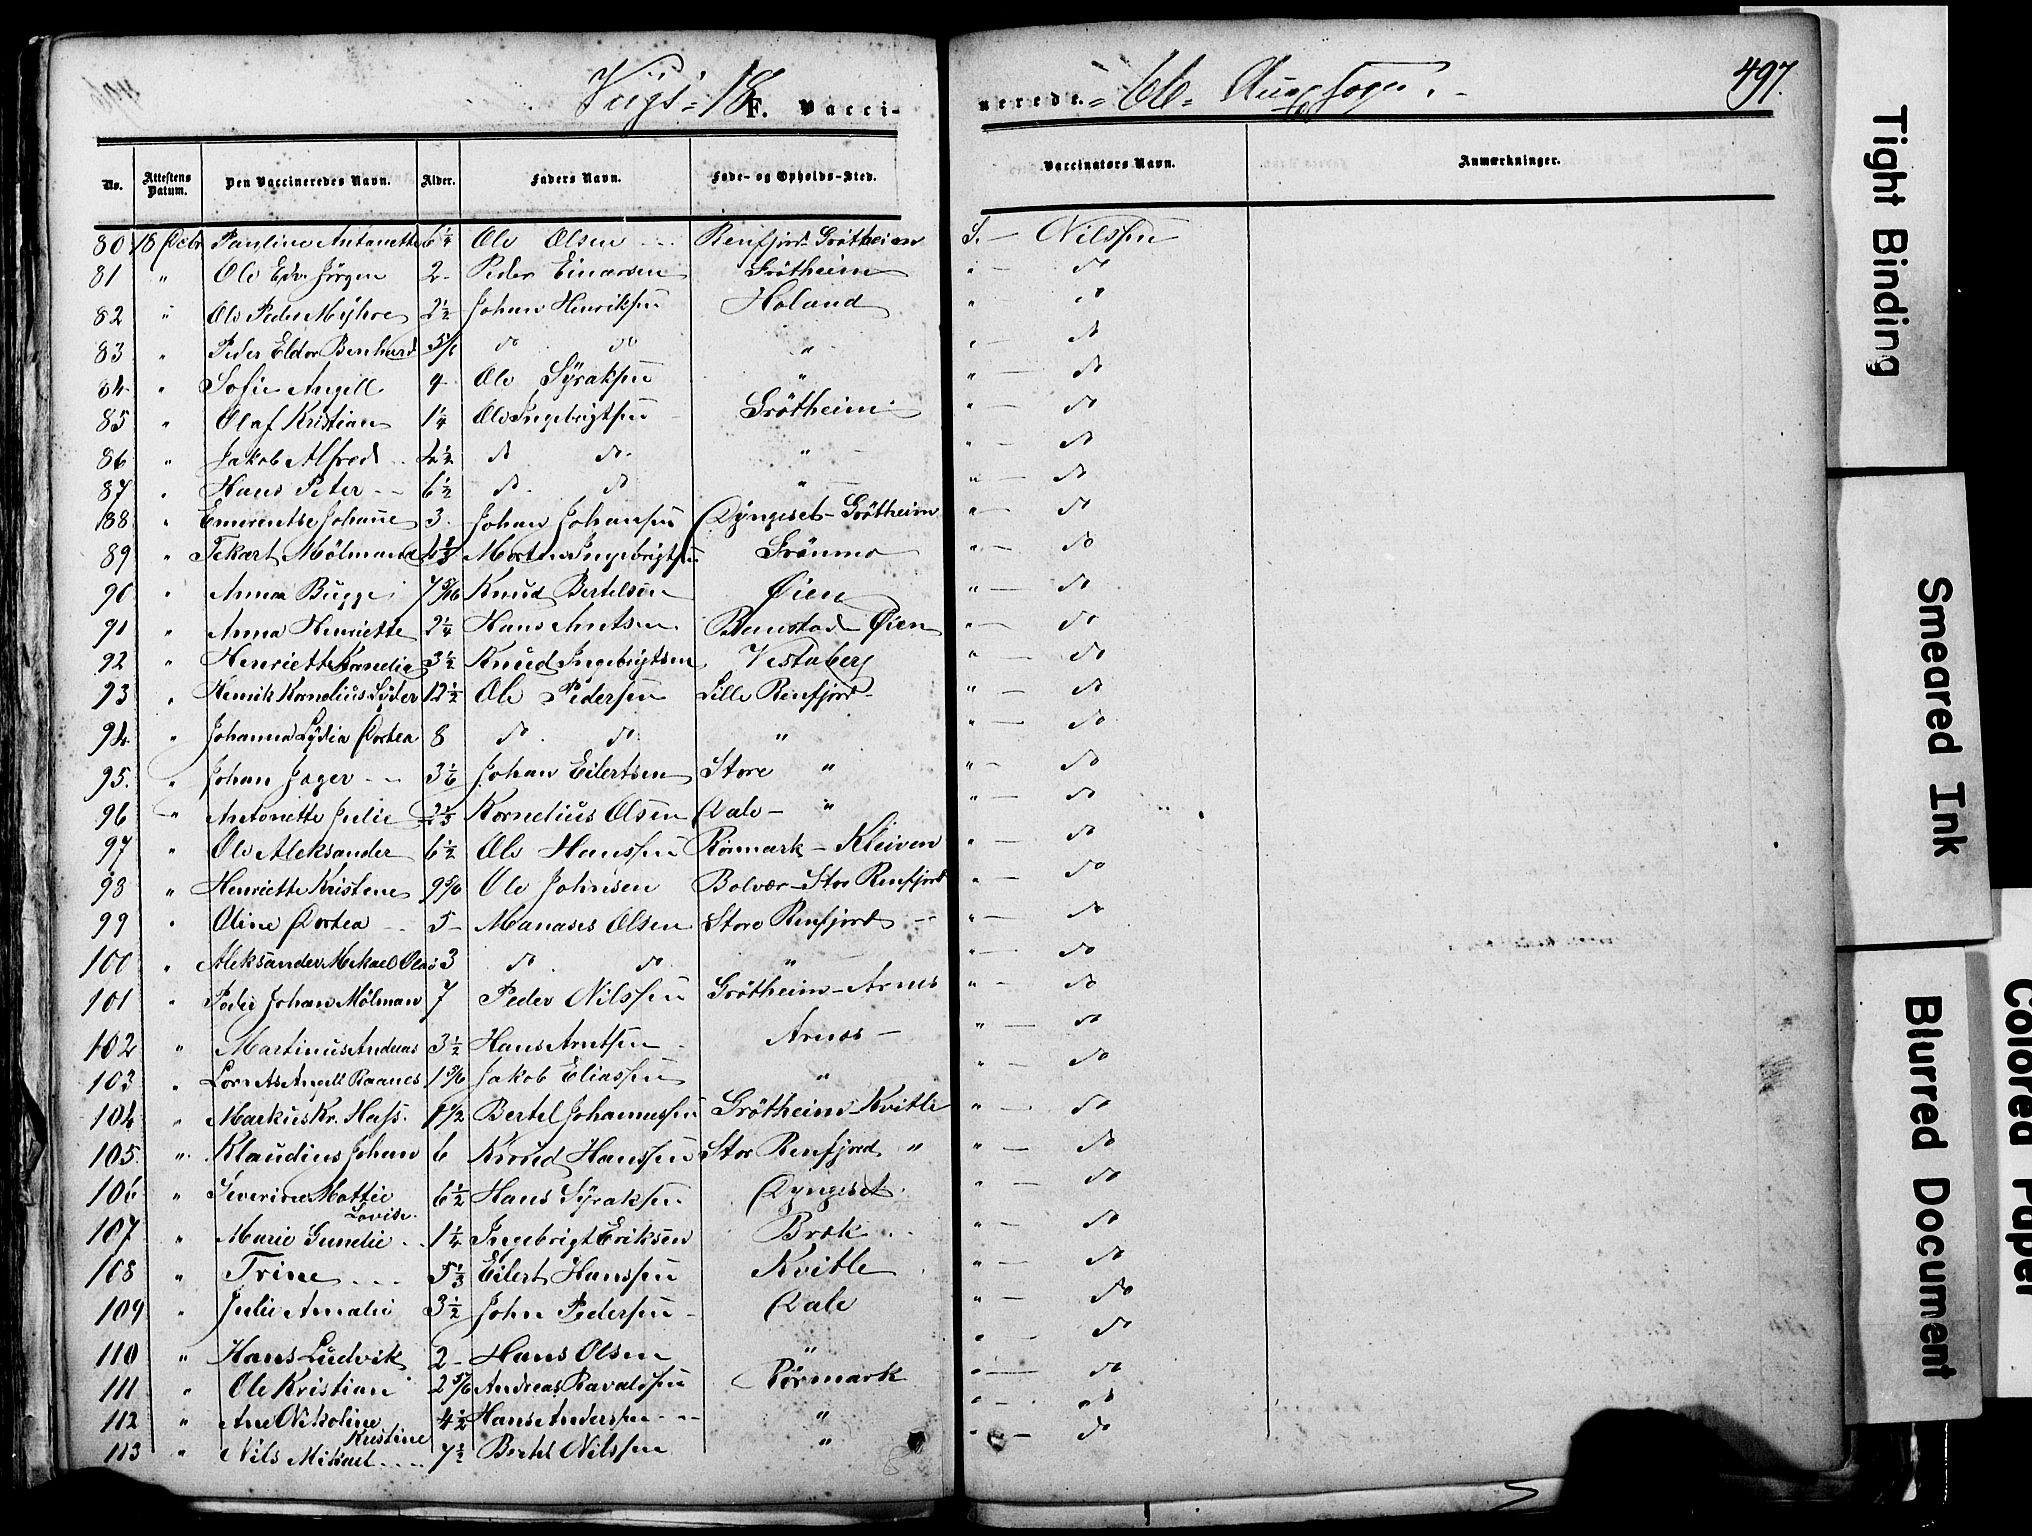 497.
F. Vacci-
nerede.
No. Attestens Datum. Den Vaccineredes Navn. Alder. Faders Navn. Føde- og Opholds-Sted. Vaccinators Navn. Anmærkninger.
80 18 Pauline Antonette 6¼ Ole Olsen Renfjord Grøtheim S. — Nilssen
81 " Ole Edv. Jørgen 2 - Peder Einarsen Grøtheim " — do
82 " Ole Peder Myhre 2½ Johan Henriksen Holand " do
83 " Peder Eldor Bernhard 5/6 do do " " — do
84 " Sofie Angell 4 Ole Syraksen " " — do
85 " Olaf Kristian 1¼ Ole Ingebrigtsen Grøtheim " — do
86 " Jakob Alfred 2½ do do " " — do
87 " Hans Peter - - 6½ do do " " — do
88 " Emerentse Johanne 3. Johan Johansen Dyngeset - Grøtheim " — do
89 " Mølmand Morten Ingebrigtsen Grønmo " — do
90 " Anna Bugge 7 Knud Bertelsen Øien " — do
91 " Anna Henriette 2¼ Hans Arntsen Øien " — do
92 " Henriette Kornelie 3½ Knud Ingebrigtsen " — do
93 " Henrik Kornelius 12½ Ole Pedersen Lille Renfjord " — do
94 " Johanna Lydia Dortea 8 do do " " — do
95. " Johan Jager - - 3⅙ Johan Eilertsen Store " " — do
96 " Antonette Julie Kornelius Olsen Dale - " " — do
97 " Ole Aleksander 6½ Ole Hanssen Rørmark - Kleiven " — do
98 " Henriette Kristine 9 5/6 Ole Johnsen Bolvær - Stor Renfjord " — do
99 " Oline Dortea 5 - Manases Olsen Store Renfjord " — do
100 " Aleksander Mikael Olai 3 do do " " — do
101 " Peder Johan Mølman 7 Peder Nilssen Grøtheim - Arnes " — do
102 " Martinus Andreas 3½ Hans Arntsen Arnes - " — do
103 " Angell Raanes 1 5/6 Jakob Eliassen " " — do
104 " Markus Kr. Bertel Johannessen Grøtheim - Kvitle " — do
105. " Klaudius Johan 6 Knud Hanssen Stor Renfjord " " — do
106 " Severine Mattie Lovise. 6½ Hans Syraksen Dyngeset " — do
107 " Marie Gunelie 1¼ Ingebrigt Eriksen Brek " — do
108 " Trine - - - 5⅓ Eilert Hanssen Kvitle " — do
109 " Julie Amalie 3½ John Pedersen Dale " — do
110 " Hans Ludvik 2 - Hans Olsen " " — do
111 " Ole Kristian 2 5/6 Andreas Ravaldsen Rørmark " — do
112 " Ane Nikoline Kristine 4½ Hans Anderssen " " - do
113 " Nils Mikael - - - 7½ Bertel Nilssen " " — do
Tight Binding
Smeared Ink
Blurred Document
Colored Paper